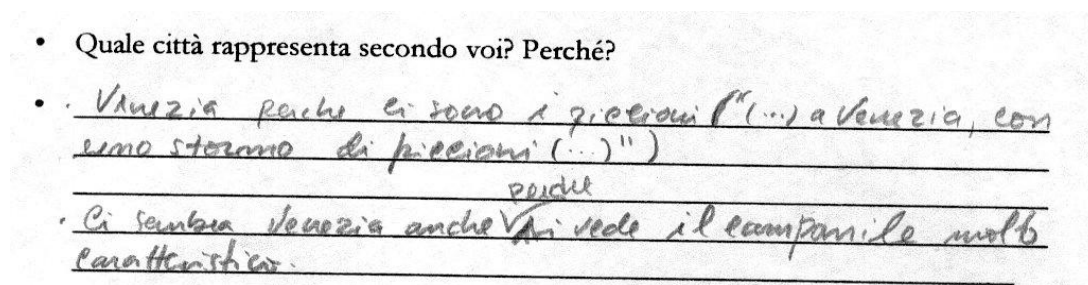 • Quale città rappresenta secondo voi? Perché?
• . Venezia perche ci sono i piccioni ("(...) a Venezia, con
uno stormo di piccioni (...)")
perche
. Ci sembra Venezia anche si vede il campanile molto
caratteristico.